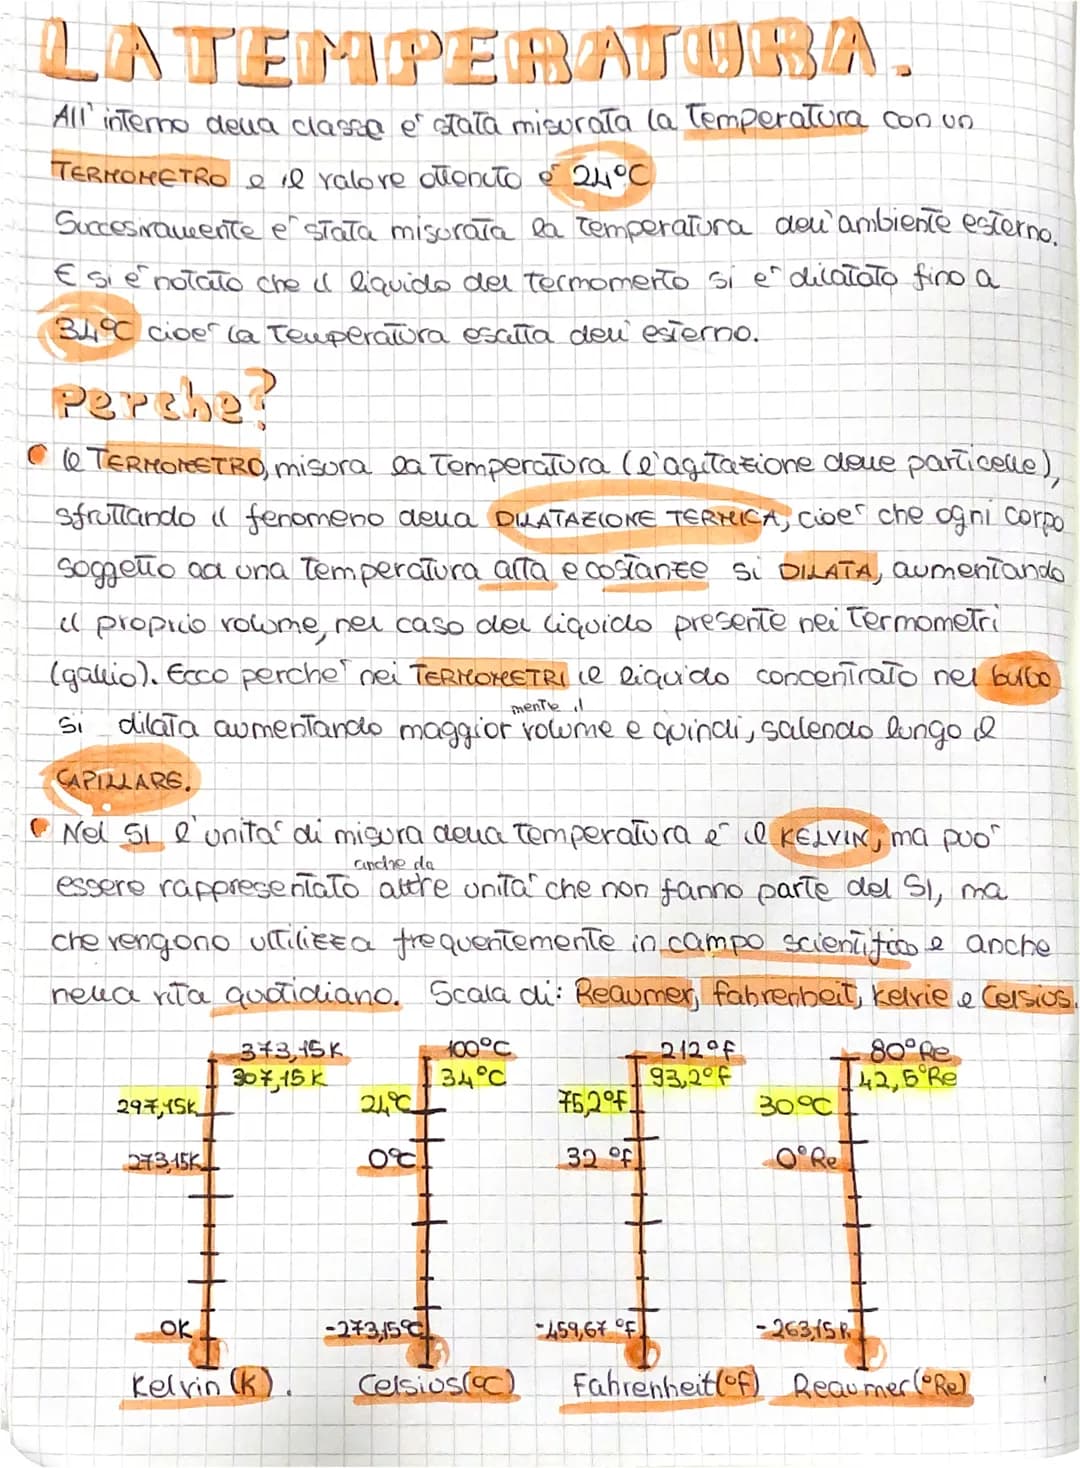 LA TEMPERATURA.
All'interno della classe e' stata misurata la Temperatura con un
TERMOMETRO e il valore ottenuto e' 24°C
Succesivamente e' stata misurata la temperatura dell'ambiente esterno.
E si e' notato che il liquido del termomerto si e' dilatato fino a
34°C cioe' la Temperatura esatta dell'esterno.
Perche?
Il TERMOMETRO, misura la Temperatura (l'agitazione delle particelle),
sfruttando il fenomeno della DILATAZIONE TERMICA, cioe' che ogni corpo
soggetto ad una Temperatura alta e costante si DILATA, aumentando
il proprio volume, nel caso del liquido presente nei Termometri
(gallio). Ecco perche' nei TERMOMETRI il liquido concentrato nel bulbo
mente il
si dilata aumentando maggior volume e quindi, salendo lungo il
CAPILLARE.
Nel SI l'unita' di misura della temperatura e' il KELVIN, ma puo'
anche da
essere rappresentato altre unita' che non fanno parte del SI, ma
che vengono utilizza frequentemente in campo scientifico e anche
nella vita quotidiano. Scala di: Reaumer, fahrenheit, kelvie e Celsius.
373,15K 100°C 212°F 80°Re
307,15K 34°C 93,2°F 42,5°Re
297,15K 24°C 75,2°F 30°C
273,15K 0°C 32°F 0°Re
0K -273,15°C -459,67°F -263,15R
Kelvin (K). Celsios(°C) Fahrenheit(°F) Reaumer(°Re)